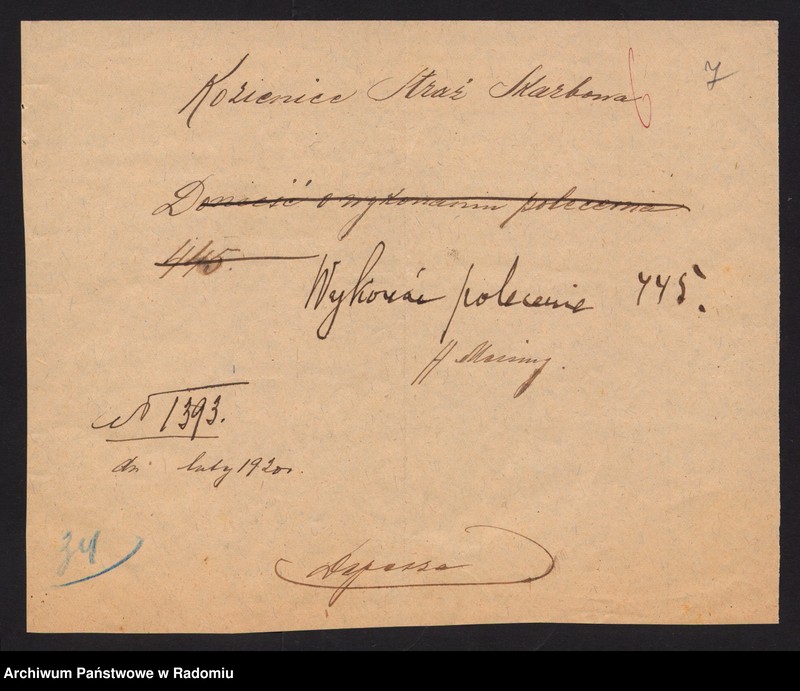 7
Kozienice Straż Skarbowa
Donieść o wykonaniu polecenia
445.
Wykonać polecenie 445.
H
№ 1393.
dn luty 1920r.
34
Depesza
Archiwum Państwowe w Radomiu